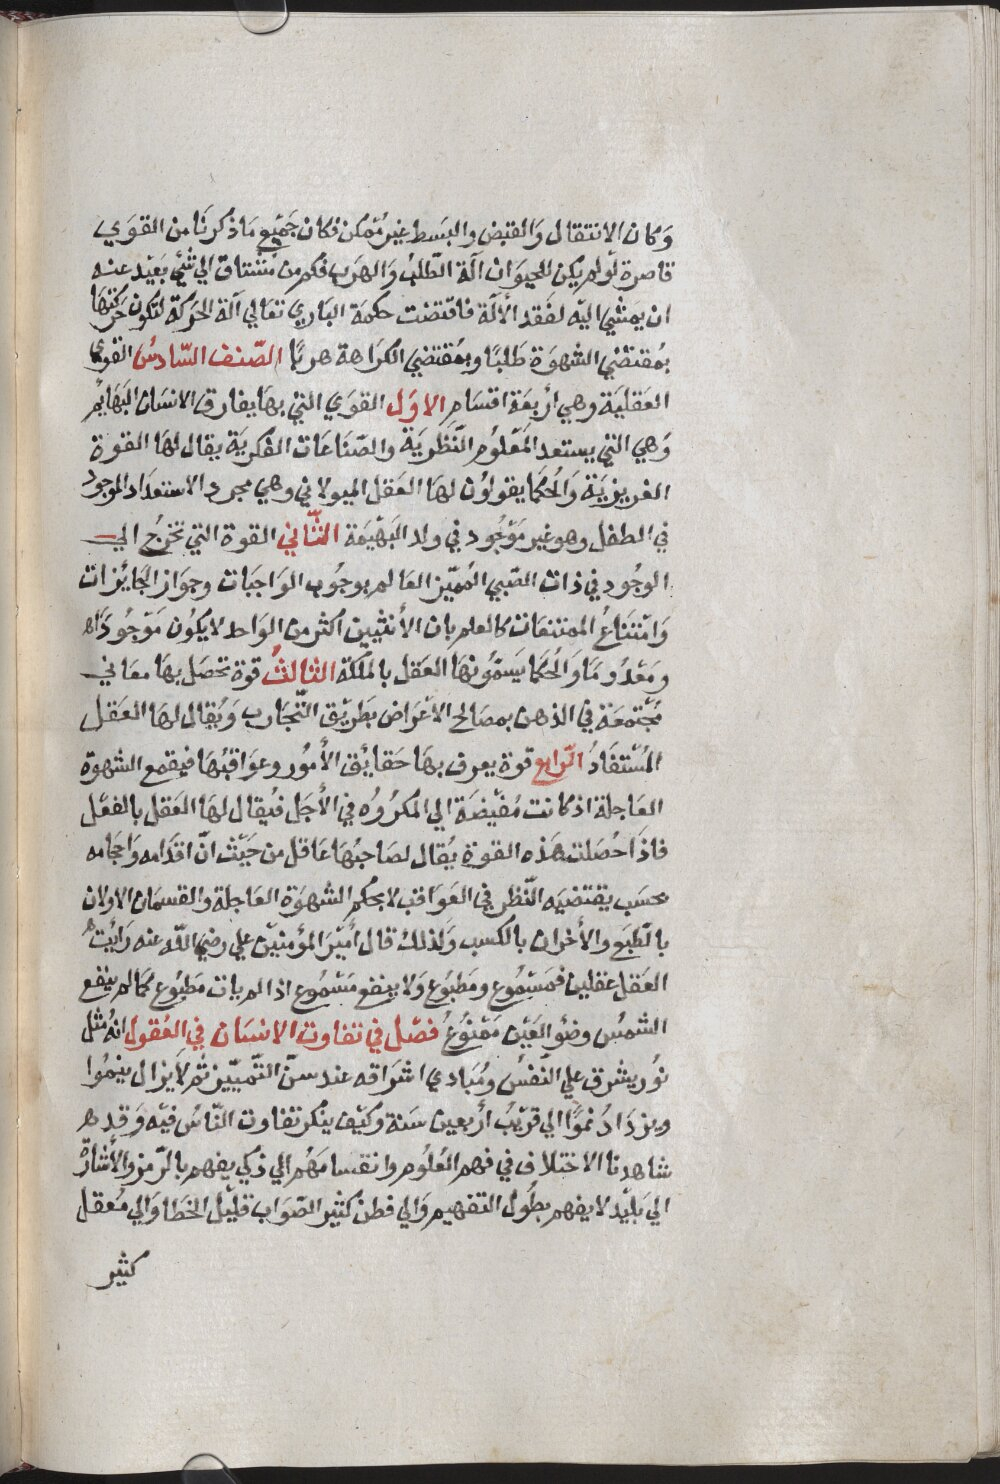 وَكان الانتقال وَالقبَض والبسَط غير مُمكن فكان جَميع مَا ذكرنَا من القوَي
قاصرة لَولم يكن للحيوَان الَة الطّلبُ وَالهرَب فكم من مُشتاق الي شيَ بعَيْد عنه
ان يمَشي اليَه لفَقد الأَلَة فاقتضت حكمَة البَاري تعَالي آلَة الحرَكة لتكون حَرَكتهَا
بمُقتضَيْ الشهوَة طَلبًا وبمُقتضَي الكرَاهة هربًا الصّنف السّادسُ القوي
العَقليَة وهي أربعَة اقسَامِ الاوَل القوَي التيْ بهَا يفارق الانسَان البَهَايُم
وَهي التيْ يستعد المَعَلوُم النَّظريَة والصّنَاعَات الفكريَة يقال لهَا القوة
الغريزيَة وَالحُكمَا يقولوُن لهَا العَقل الهيولاني وهي مجرد الاستعدَاد الموجود
في الطفل وهو غير مَوْجُود في ولد البَهيْمَة الثّاني القوة التي تخرجُ الي
الوجُود في ذات الصّبي المُميّز العَا لم بوجُوب الوَاجبَات وجوَاز الجَايُزات
وَامْتنَاعُ الممتنعَات كالعلم بان الأثنيين اكثر من الوَاحد لا يكوُن مَوْجُودَا
ومَعْدُومَا وَالحُكمَا يسَمّوُنهَا العَقل بالملكَة الثالثُ قوة تحصَل بهَا معَاني
مُجْتمعَة في الذهن بمصَالح الأغرَاض بَطريْق التّجَارب وَيُقال لهَا العَقل
المُسْتفَادُ الرّابع قوة يعرف بهَا حَقايُق الأمُور وعوَاقبُهَا فيقمع الشهوَة
العَاجلة اذكانت مُفيْضَة الي المكرُوُه في الأجَل فيُقال لهَا العَقل بالفعْل
فاذَا حُصَلت هَذه القوة يُقال لصَاحبُهَا عَاقل من حَيْث انّ اقدَامه وَاحجامه
بحسَب يقتضيَه النّظر في العَوَاقب لا بحكم الشهْوَة العَاجلة والقسمَان الاولان
بالطّبَع والأخران بالكسب وَلذلكُ قال أميْرَ المؤمنيْن علي رضيَ اللّه عنه رَايتُ
العَقل عقلين فمَسْموُع ومَطبوُع وَلا ينفع مَسْموُع اذا لم يات مَطبُوع كمَا لم ينفع
الشمسُ وضوُ العَيْن مَمْنوُعُ فصْل في تفاوت الانسَان في العُقول انهُ مثل
نوُر يشرق علي النّفسْ ومُبَادي اشرَاقه عند سنّ التّمييّز ثم لا يَزال ينموُا
ويزدَادُ نموًّا الي قرَيْبُ أربعين سَنة وكيْف ينكر تفاوت النّاسُ فيْه وَقد
شاهدنا الاختلاف في فهم العُلوُم وانقسامهُم الي ذكي يفهم بالرّمز والأشارَة
الي بَليْد لا يفهم بطوُل التفهيم وَالي فطن كثيْر الصّوَاب قليْل الخَطا وَالي مُعقل
كثير